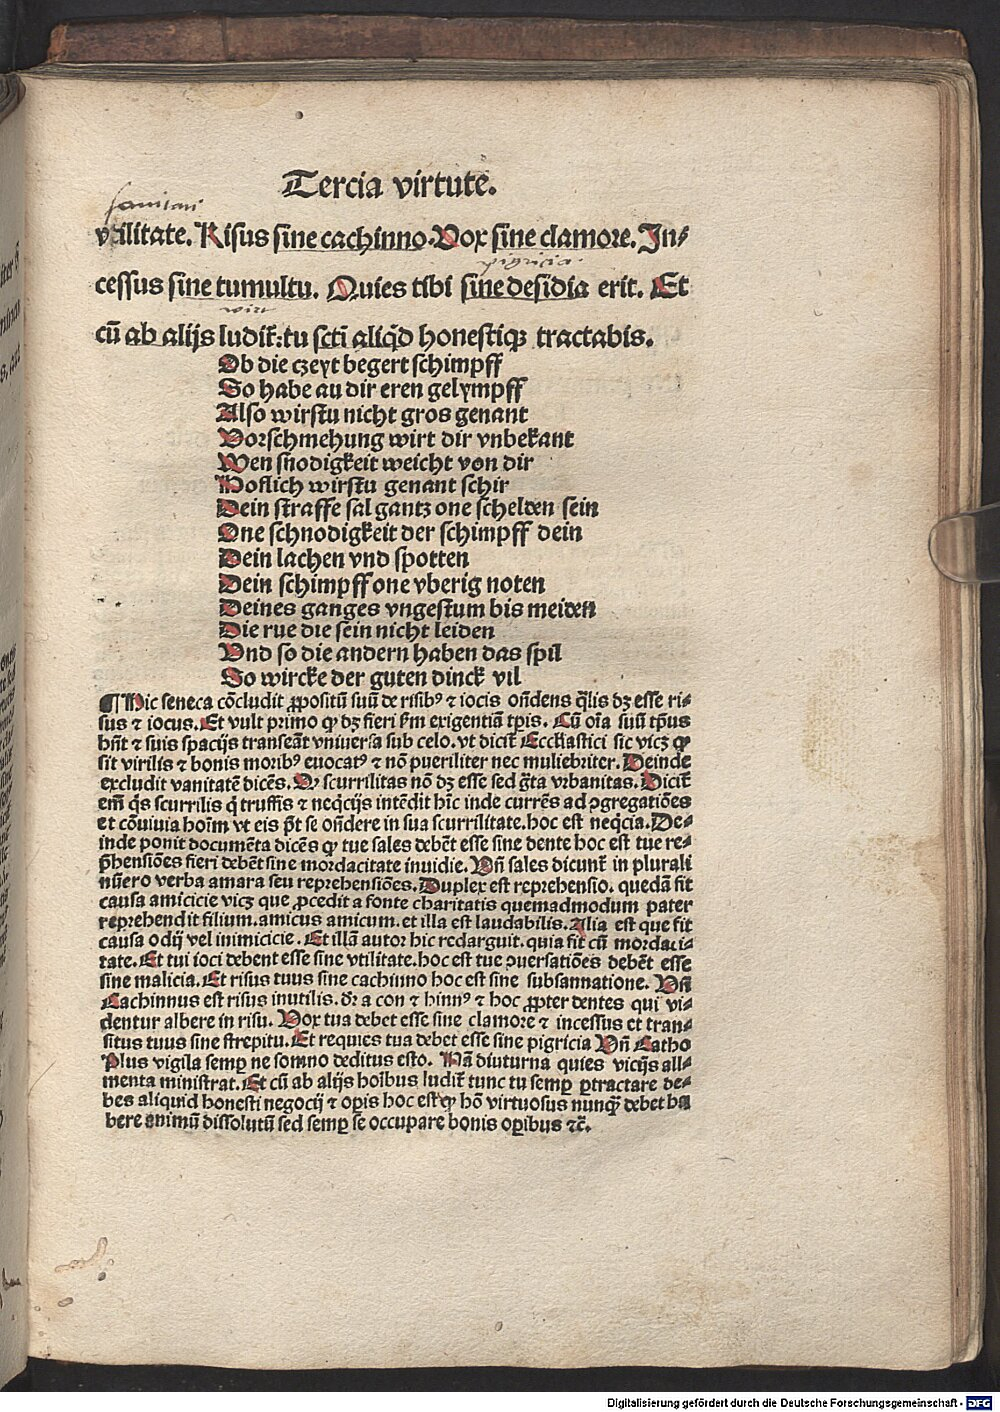 Tercia virtute.
vtilitate. Risus sine cachinno. Vox sine clamore. In⸗
pigricia
cessus sine tumultu. Quies tibi sine desidia erit. Et
cū ab alijs ludit̄: tu sc̄ti aliq̄d honestiqꝫ tractabis.
Ob die czeyt begert schimpff
So habe au dir eren gelympff
Also wirstu nicht gros genant
Vorschmehung wirt dir vnbekant
Wen snodigkeit weicht von dir
Hoflich wirstu genant schir
Dein straffe sal gantz one schelden sein
One schnodigkeit der schimpff dein
Dein lachen vnd spotten
Dein schimpff one vberig noten
Deines ganges vngestum bis meiden
Die rue die sein nicht leiden
Vnd so die andern haben das spil
So wircke der guten dinck vil
¶ Hic seneca cōcludit ꝓpositū suū de risibꝰ ⁊ iocis on̄dens q̄lis dꝫ esse ri⸗
sus ⁊ iocus. Et vult primo ꝙ dꝫ fieri ẜm exigentiā tp̄is. Cū oīa suū tp̄us
hn̄t ⁊ suis spacijs transeāt vniuersa sub celo. vt dicit̄ Eccl̄iastici sic vicꝫ ꝙ
sit virilis ⁊ bonis moribꝰ euocatꝰ ⁊ nō pueriliter nec muliebriter. Deinde
excludit vanitatē dicēs. Ꝙ scurrilitas nō dꝫ esse sed ḡta vrbanitas. Dicit̄
em̄ q̄s scurrilis q̄ truffis ⁊ neq̄cijs intēdit hīc inde currēs ad ꝯgregatiōes
et cōuiuia hoīm vt eis p̄t se on̄dere in sua scurrilitate. hoc est neq̄cia. De⸗
inde ponit documēta dicēs ꝙ tue sales debēt esse sine dente hoc est tue re⸗
p̄hensiōes fieri debēt sine mordacitate inuidie. Vn̄ sales dicunt̄ in plurali
nūero verba amara seu reprehensiōes. Duplex est reprehensio. quedā fit
causa amicicie vicꝫ que ꝓcedit a fonte charitatis quemadmodum pater
reprehendit filium. amicus amicum. et illa est laudabilis. Alia est que fit
causa odij vel inimicicie. Et illā autor hic redarguit. quia fit cū mordaci⸗
tate. Et tui ioci debent esse sine vtilitate. hoc est tue ꝯuersatiōes debēt esse
sine malicia. Et risus tuus sine cachinno hoc est sine subsannatione. Vn̄
Cachinnus est risus inutilis. dr̄ a con ⁊ hinnꝰ ⁊ hoc ꝓpter dentes qui vi⸗
dentur albere in risu. Vox tua debet esse sine clamore ⁊ incessus et tran⸗
situs tuus sine strepitu. Et requies tua debet esse sine pigricia Vn̄ Catho
Plus vigila semꝑ ne somno deditus esto. Nā diuturna quies vicijs ali⸗
menta ministrat. Et cū ab alijs hoībus ludit̄ tunc tu semꝑ ꝑtractare de⸗
bes aliquid honesti negocij ⁊ oꝑis hoc est ꝙ hō virtuosus nunqꝫ debet ha
bere animū dissolutū sed semꝑ se occupare bonis oꝑibus ⁊c̄.
Digitalisierung gefördert durch die Deutsche Forschungsgemeinschaft - DFG